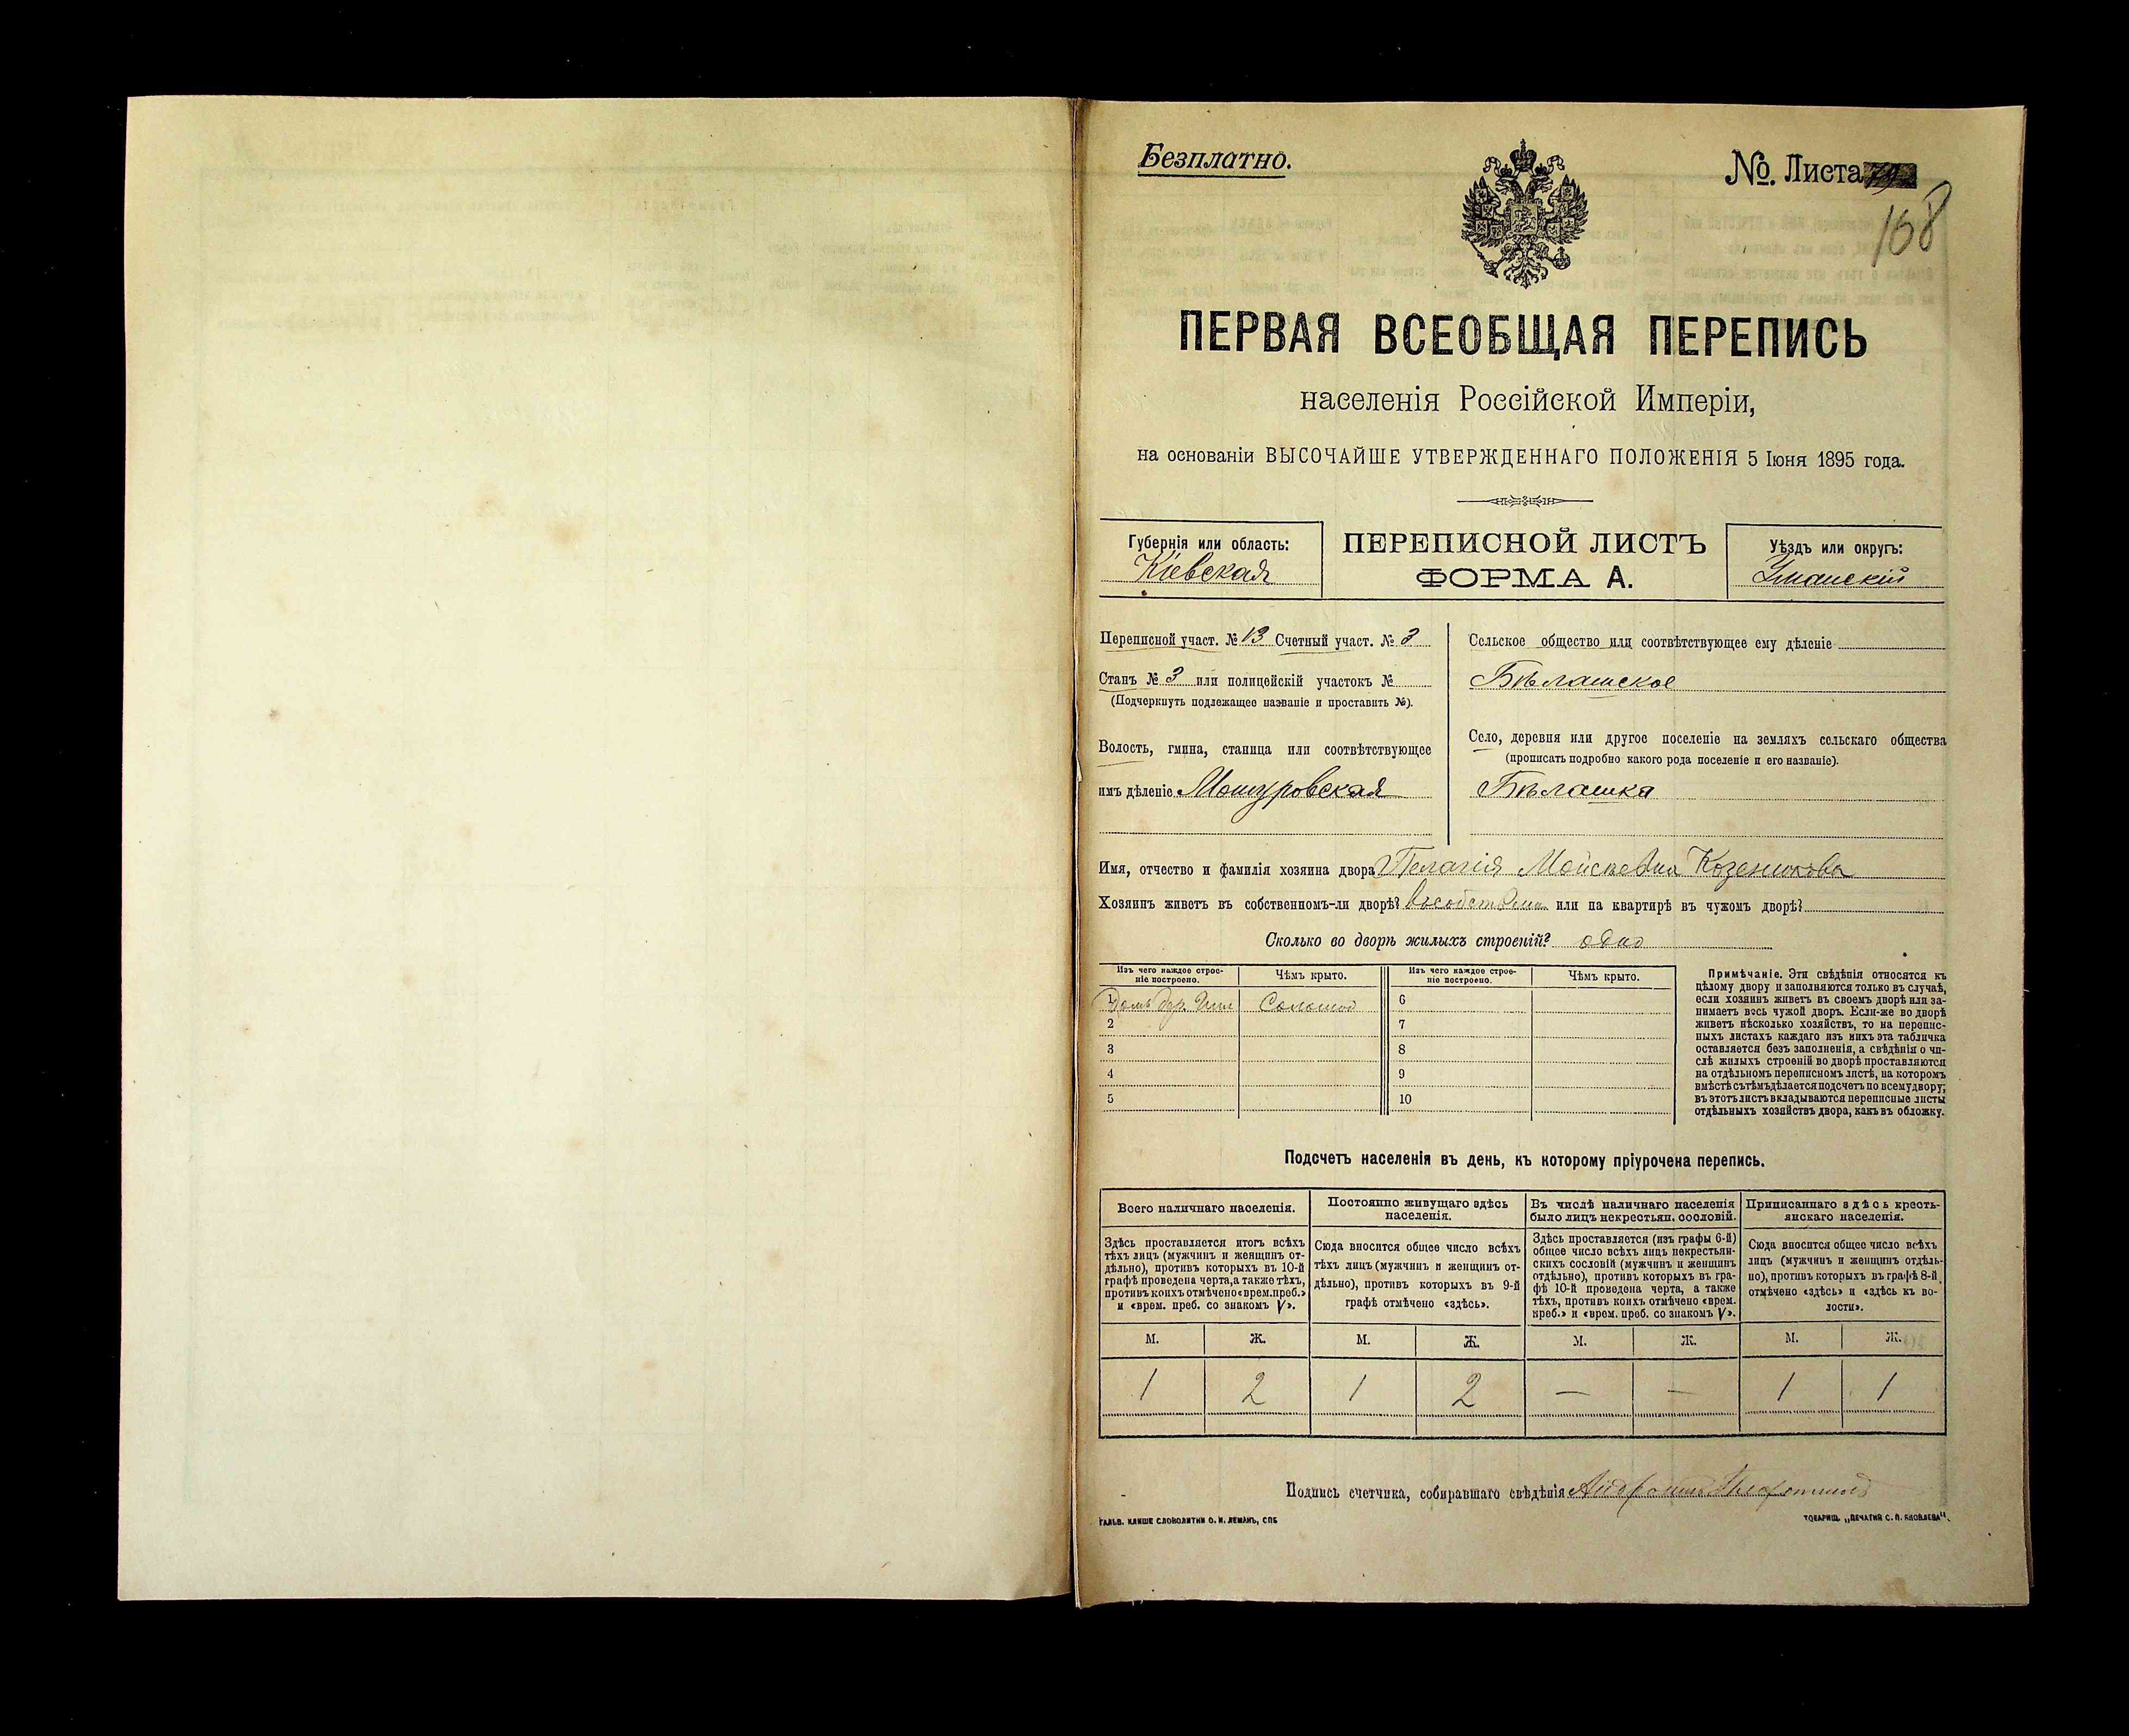 Безплатно.
№. Листа
108
ПЕРВАЯ ВСЕОБЩАЯ ПЕРЕПИСЬ
населенія Россійской Имперіи,
на основаніи ВЫСОЧАЙШЕ УТВЕРЖДЕННАГО ПОЛОЖЕНІЯ 5 Іюня 1895 года.
Губернія или область:
Кіевская
ПЕРЕПИСНОЙ ЛИСТЪ
ФОРМА А.
Уѣздъ или округъ:
Уманскій
Переписной участ. № 13 Счетный участ. № 3
Станъ № 3 или полицейскій участокъ №
(Подчеркнуть подлежащее названіе и проставить №).
Волость, гмина, станица или соотвѣтствующее
имъ дѣленіе Мошуровская
Сельское общество или соотвѣтствующее ему дѣленіе
Бѣлашское
Село, деревня или другое поселеніе на земляхъ сельскаго общества
(прописать подробно какого рода поселеніе и его названіе).
Бѣлашка
Имя, отчество и фамилія хозяина двора Пелагія Мойсѣевна Козенюкова
Хозяинъ живетъ въ собственномъ-ли дворѣ? или на квартирѣ въ чужомъ дворѣ?
Сколько во дворѣ жилыхъ строеній? одно
Изъ чего каждое строе-
ніе построено.
Чѣмъ крыто.
Изъ чего каждое строе-
ніе построено.
Чѣмъ крыто.
1 Домъ дер. Соломой 6
2 7
3 8
4 9
5 10
Примѣчаніе. Эти свѣдѣнія относятся къ
цѣлому двору и заполняются только въ случаѣ,
если хозяинъ живетъ въ своемъ дворѣ или за-
нимаетъ весь чужой дворъ. Если-же во дворѣ
живетъ нѣсколько хозяйствъ, то на перепис-
ныхъ листахъ каждаго изъ нихъ эта табличка
оставляется безъ заполненія, а свѣдѣнія о чи-
слѣ жилыхъ строеній во дворѣ проставляются
на отдѣльномъ переписномъ листѣ, на которомъ
вмѣстѣ съ тѣмъ дѣлается подсчетъ по всему двору;
въ этотъ листъ вкладываются переписные листы
отдѣльныхъ хозяйствъ двора, какъ въ обложку.
Подсчетъ населенія въ день, къ которому пріурочена перепись.
Всего наличнаго населенія.
Здѣсь проставляется итогъ всѣхъ
тѣхъ лицъ (мужчинъ и женщинъ от-
дѣльно), противъ которыхъ въ 10-й
графѣ проведена черта, а также тѣхъ,
противъ коихъ отмѣчено «врем. преб.»
и «врем. преб. со знакомъ V».
Постоянно живущаго здѣсь
населенія.
Сюда вносится общее число всѣхъ
тѣхъ лицъ (мужчинъ и женщинъ от-
дѣльно), противъ которыхъ въ 9-й
графѣ отмѣчено «здѣсь».
Въ числѣ наличнаго населенія
было лицъ некрестьян. сословій.
Здѣсь проставляется (изъ графы 6-й)
общее число всѣхъ лицъ некрестьян-
скихъ сословій (мужчинъ и женщинъ
отдѣльно), противъ которыхъ въ гра-
фѣ 10-й проведена черта, а также
тѣхъ, противъ коихъ отмѣчено «врем.
преб.» и «врем. преб. со знакомъ V».
Приписаннаго здѣсь кресть-
янскаго населенія.
Сюда вносится общее число всѣхъ
лицъ (мужчинъ и женщинъ отдѣль-
но), противъ которыхъ въ графѣ 8-й
отмѣчено «здѣсь» и «здѣсь къ во-
лости».
М. Ж. М. Ж. М. Ж. М. Ж.
1 2 1 2 — — 1 1
Подпись счетчика, собиравшаго свѣдѣнія
ГАЛЬВ. КЛИШЕ СЛОВОЛИТНИ О. И. ЛЕМАНЪ, СПБ
ТОВАРИЩ. „ПЕЧАТНЯ С. П. ЯКОВЛЕВА".